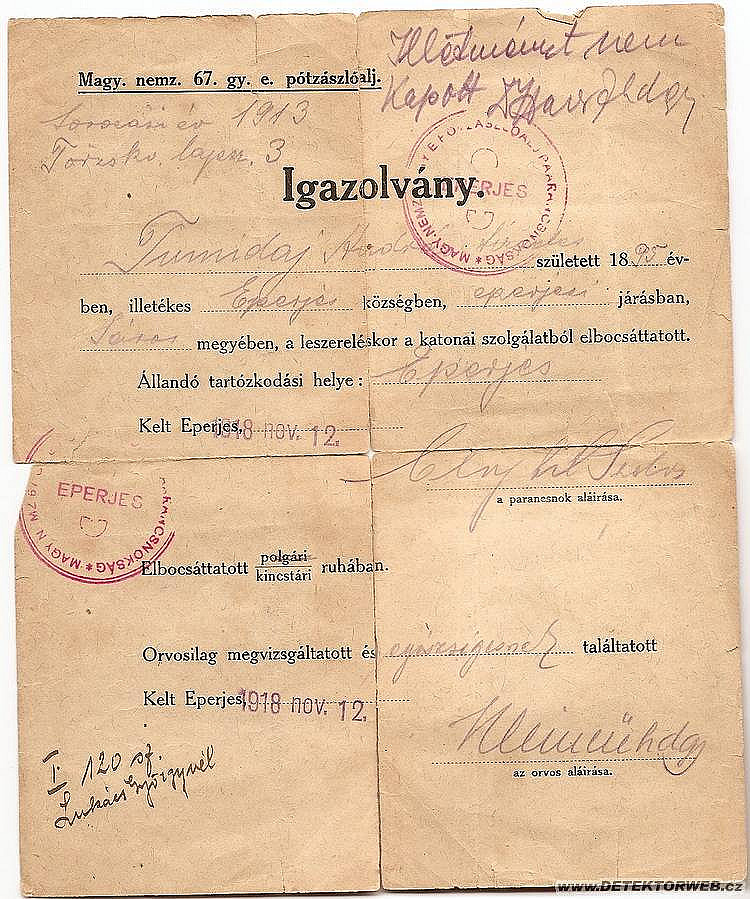 Magy. nemz. 67. gy. e. pótzászlóalj.
Illetményt nem
Kapott
sorozási év 1913
Törzskv. lapsz. 3
Igazolvány.
EPERJES
MAGY. NEMZ.
Tumidaj született 1895 év-
ben, illetékes Eperjes községben, eperjesi járásban,
Sáros megyében, a leszereléskor a katonai szolgálatból elbocsáttatott.
Állandó tartózkodási helye: Eperjes
Kelt Eperjes, 1918 nov. 12.
a parancsnok aláirása.
EPERJES
Elbocsáttatott polgári
kincstári ruhában.
Orvosilag megvizsgáltatott és egészségesnek találtatott
Kelt Eperjes, 1918 nov. 12.
az orvos aláirása.
I. 120 sz.
Lukács Györgynél
www.DETEKTORWEB.cz